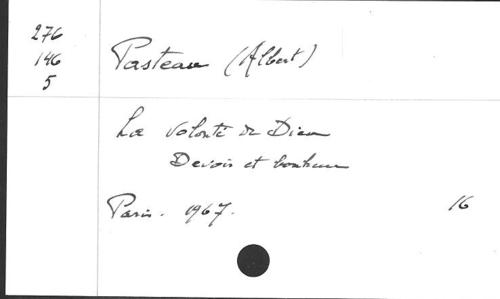 276
146
5
Pasteau (Albert)
La volonté de Dieu
Devoir et bonheur
Paris. 1967.
16